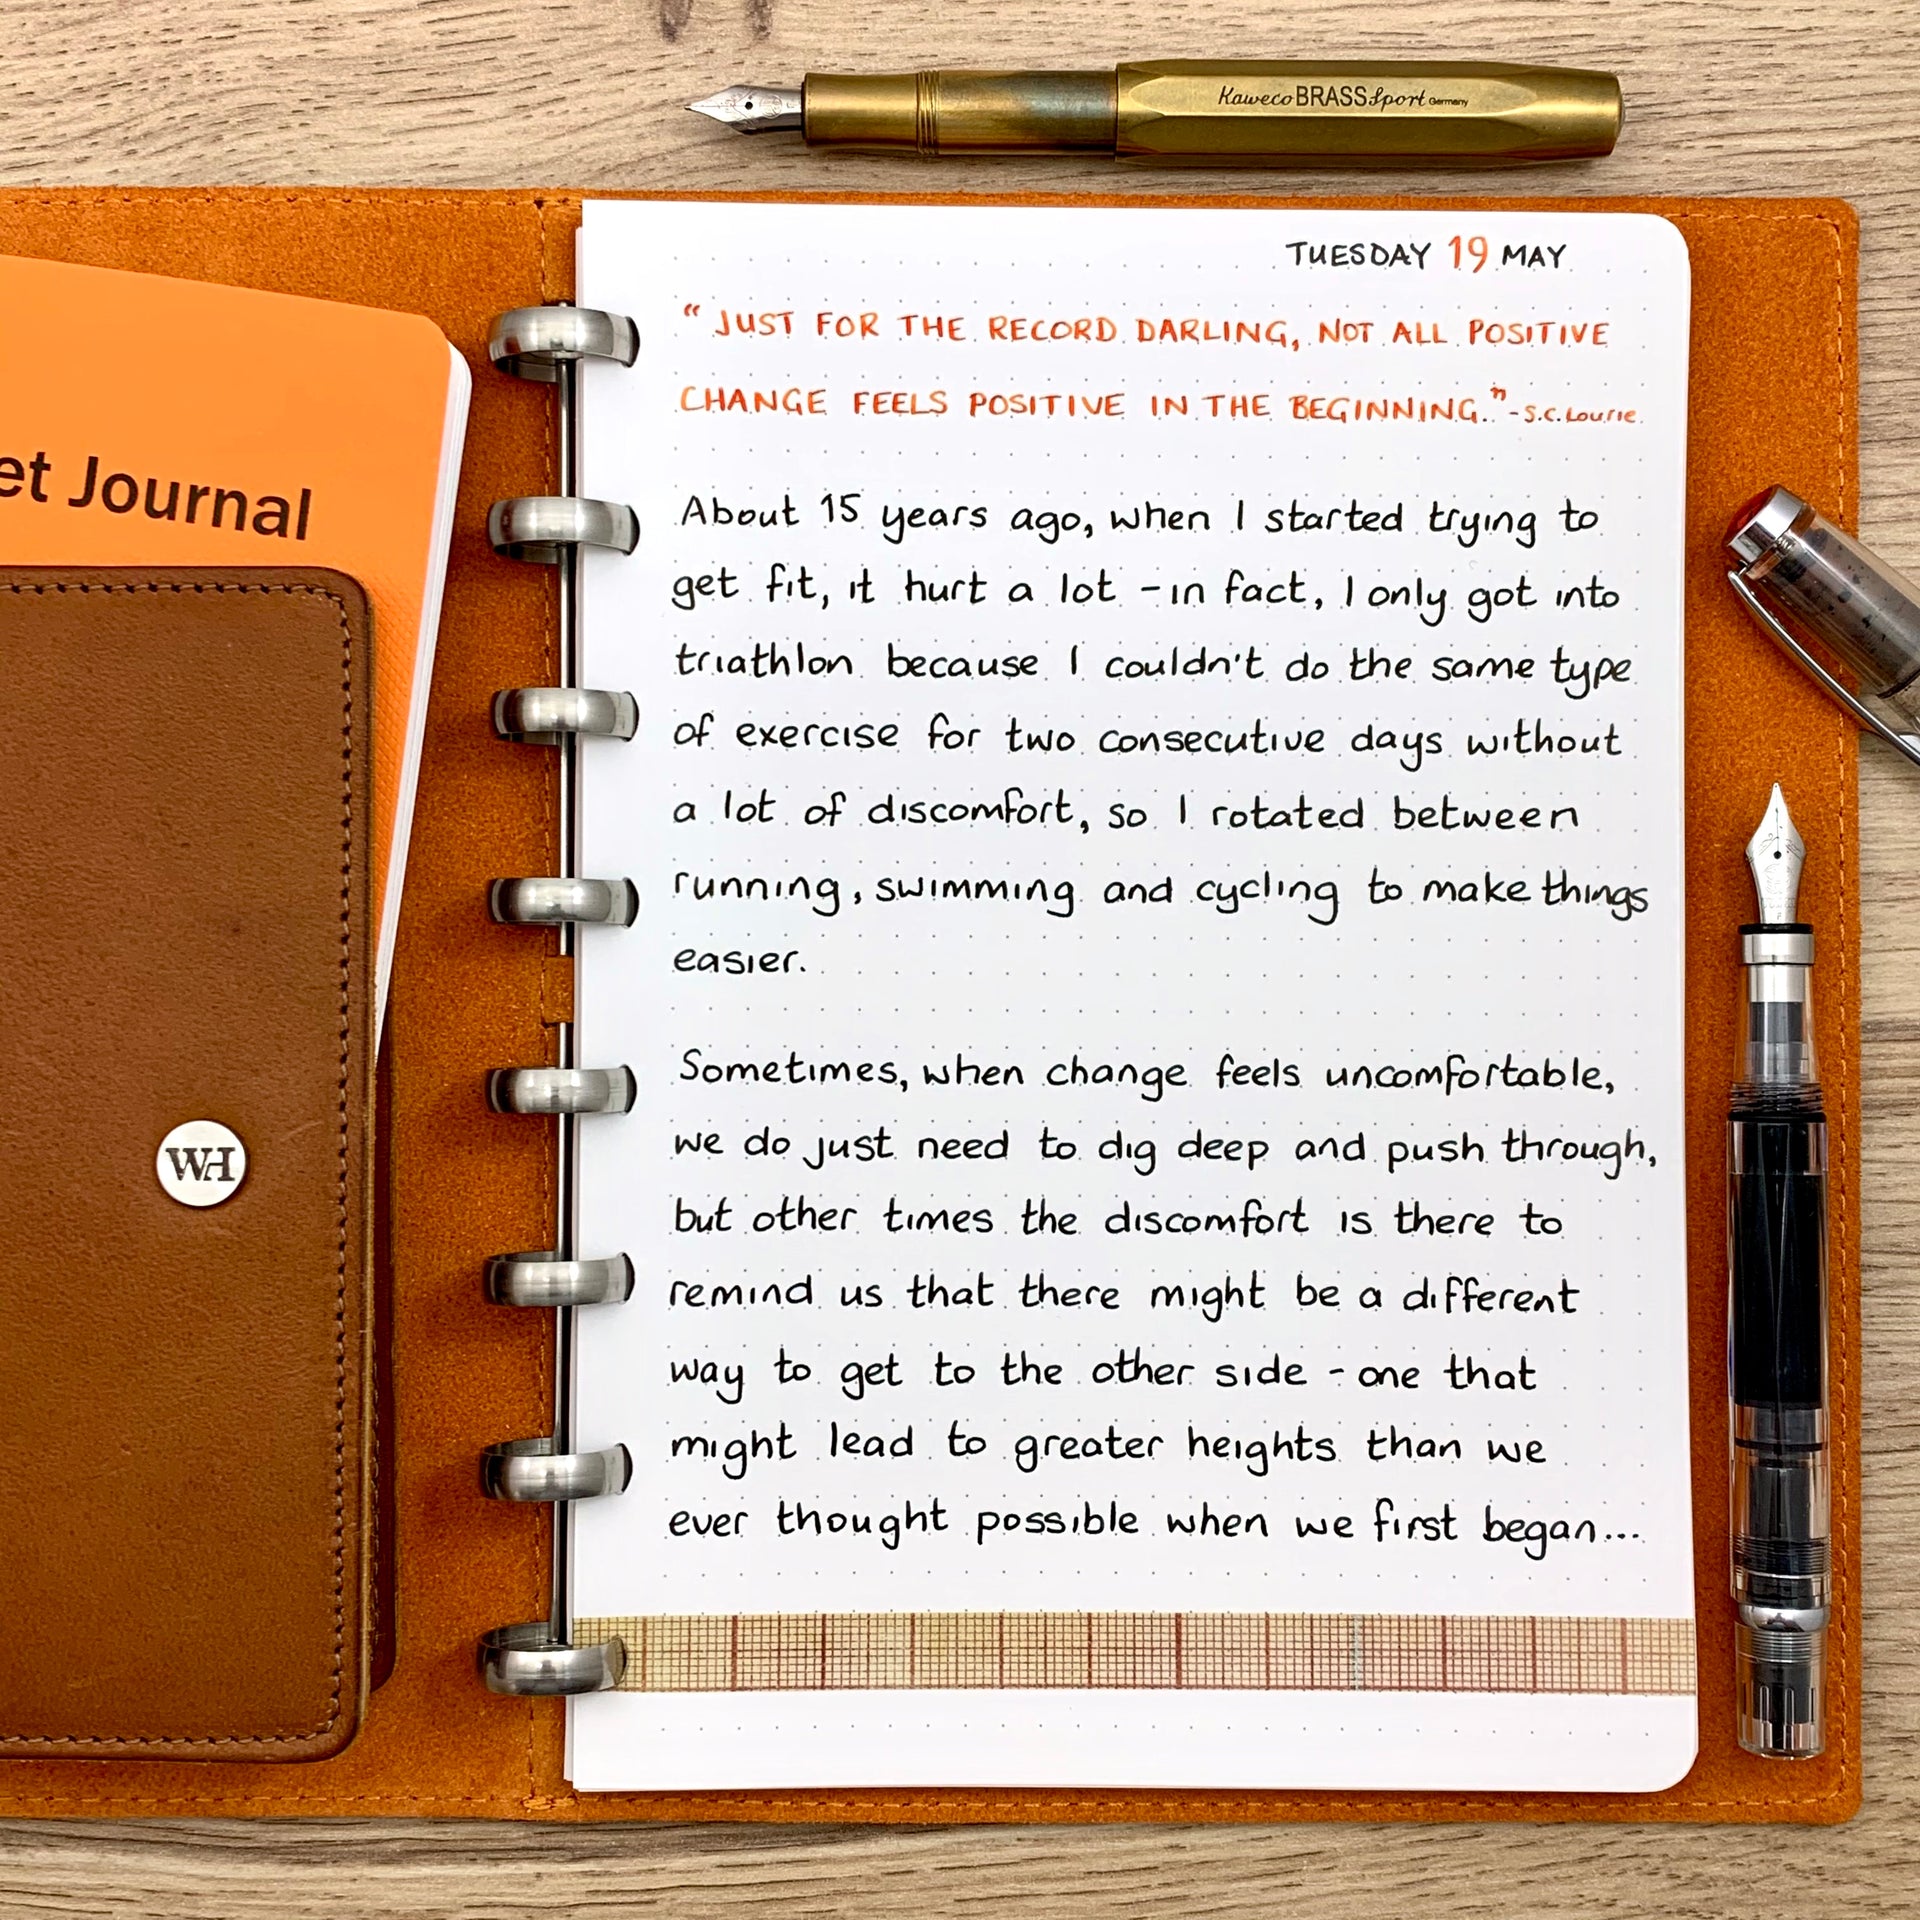 Kaweco BRASS Sport Germany
TUESDAY 19 MAY
“JUST FOR THE RECORD DARLING, NOT ALL POSITIVE
CHANGE FEELS POSITIVE IN THE BEGINNING.” - S.C. Lourie.
et Journal
About 15 years ago, when I started trying to
get fit, it hurt a lot - in fact, I only got into
triathlon because I couldn't do the same type
of exercise for two consecutive days without
a lot of discomfort, so I rotated between
running, swimming and cycling to make things
easier.
Sometimes, when change feels uncomfortable,
we do just need to dig deep and push through,
but other times the discomfort is there to
remind us that there might be a different
way to get to the other side - one that
might lead to greater heights than we
ever thought possible when we first began...
WH